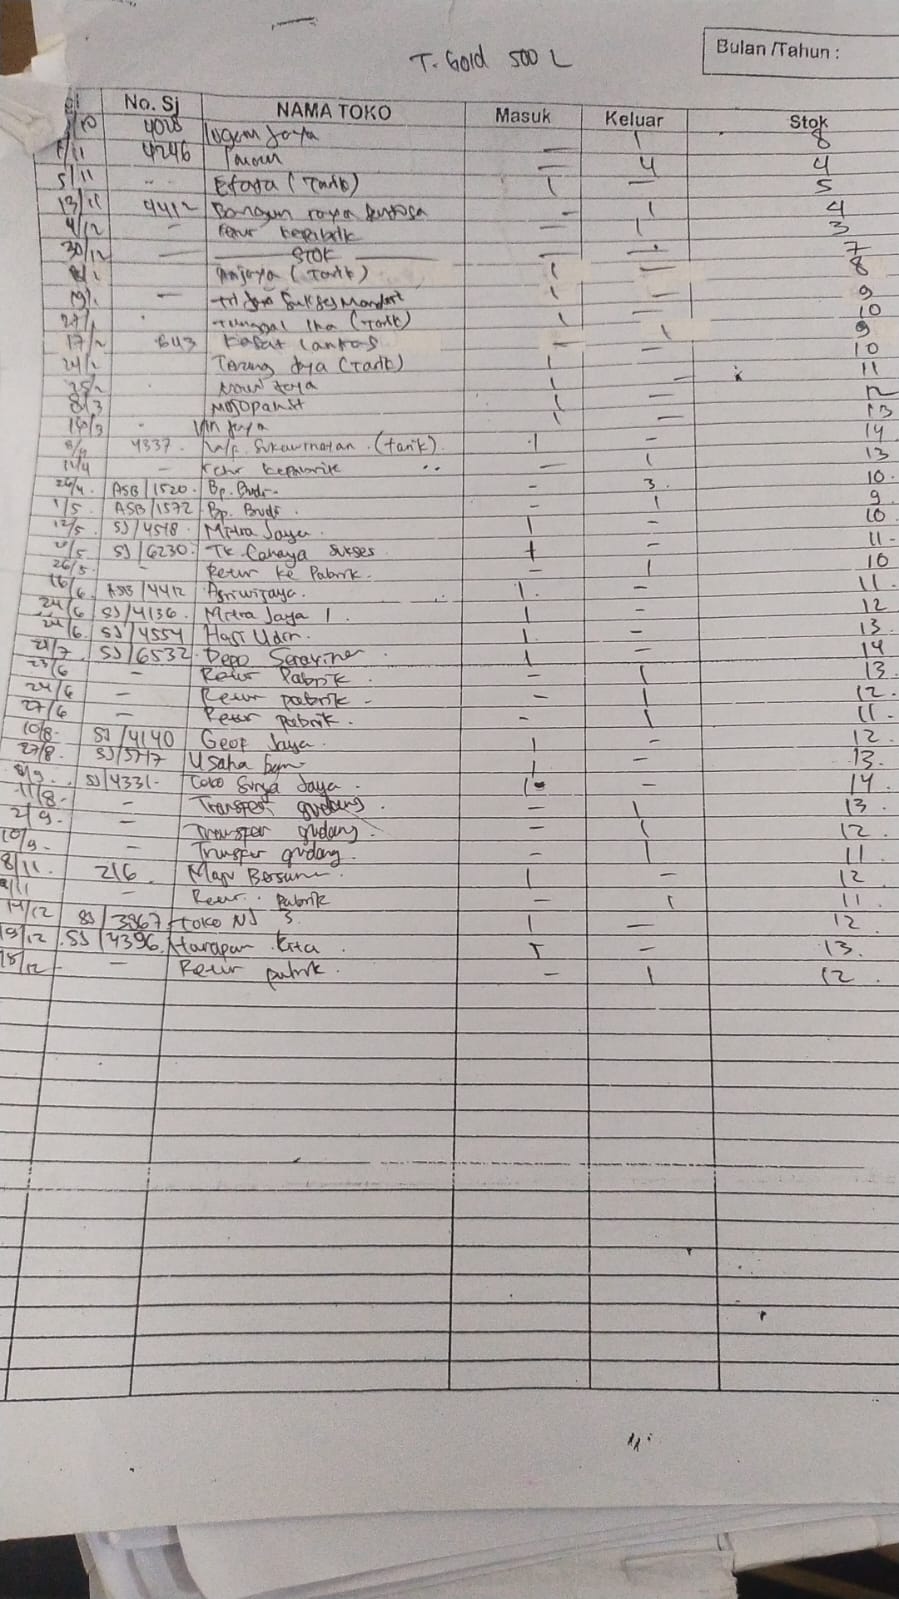 T. Gold 500 L
Bulan /Tahun :
No. Sj NAMA TOKO Masuk Keluar Stok
/10 4028 logam Jaya - 1 8
/11 4246 - 4 4
5/11 - Efata (Tarik) 1 - 5
13/11 4412 Bangun raya Sentosa - 1 4
4/12 - retur kepabrik - 1 3
30/12 - STOK - - 7
Anjaya (Tarik) 1 - 8
- Tri Jaya Sukses Mandiri 1 - 9
Tunggal Ika (Tarik) 1 - 10
17/2 643 - 1 9
24/2 Terang Jaya (Tarik) 1 - 10
25/2 Jaya 1 - 11
8/3 1 - 12
Jaya 1 - 13
4337. Sukawinatan (tarik). 1 - 14
14/4 - retur kepabrik - 1 13
26/4. ASB/1520. Bp. Budi. - 3. 10.
1/5 ASB/1572 Bp. Budi. - 1 9
12/5. SJ/4518. Mitra Jaya. 1 - 10
SJ/6230. Tk. Cahaya Sukses 1 - 11.
26/5. - Retur Ke Pabrik. - 1 10
16/6 ASB/4412 Asriwijaya. 1. - 11.
24/6 SJ/4136. Mitra Jaya 1. 1 - 12
24/6. SJ/4554 Hasi Udin. 1. - 13.
21/7. SJ/6532. Depo 1 - 14
23/6 - Retur Pabrik. - 1 13.
24/6 - Retur pabrik. - 1 12.
27/6 - Retur pabrik. - 1 11.
10/8. SJ/4140 Geof Jaya. 1 - 12.
27/8. SJ/5717 Usaha 1 - 13.
8/9. SJ/4331. Toko Surya Jaya. 1 - 14
11/8. - Transfer gudang. - 1 13.
2/9. - Transfer gudang. - 1 12.
10/9. - Transfer gudang. - 1 11.
8/11. 216. Maju Bersama. 1 - 12
- Retur pabrik - 1 11.
14/12 SJ/3967 toko NJ 3. 1 - 12.
19/12 SJ/4396. Harapan Kita. 1 - 13.
18/12 - Retur pabrik. - 1 12.